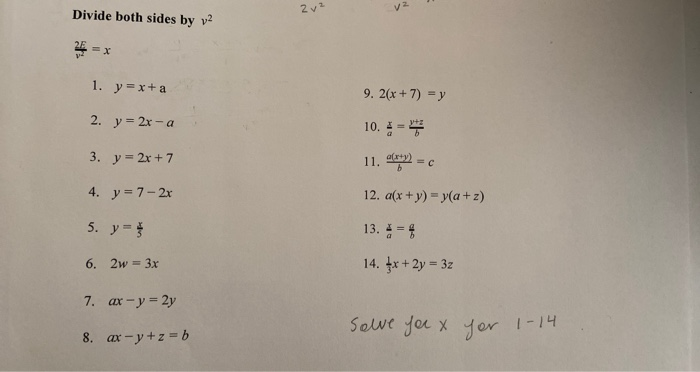 2v²
v²
Divide both sides by v²
2E/v² = x
1. y = x + a
2. y = 2x – a
3. y = 2x + 7
4. y = 7 – 2x
5. y = x/5
6. 2w = 3x
7. ax – y = 2y
8. ax – y + z = b
9. 2(x + 7) = y
10. x/a = y+z/b
11. a(x+y)/b = c
12. a(x + y) = y(a + z)
13. x/a = a/b
14. 1/3x + 2y = 3z
Solve for x for 1-14